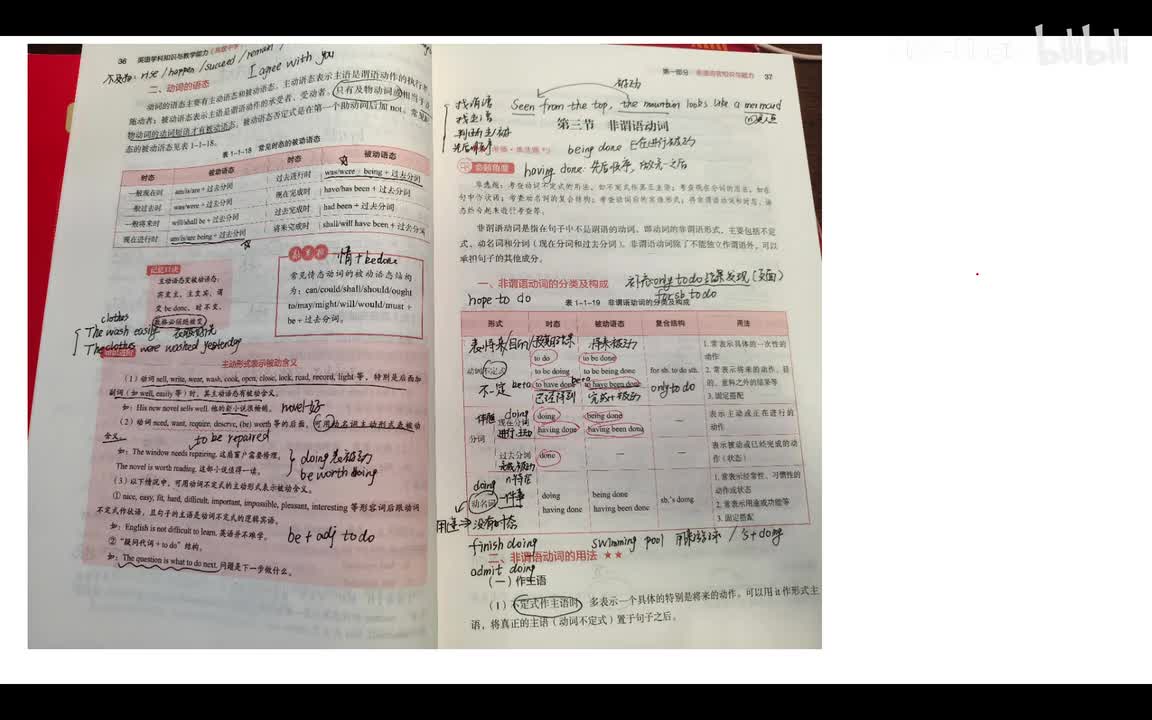 36 英语学科知识与教学能力
rise / happen / succeed / remain /
I agree with you
二、动词的语态
动词的语态主要有主动语态和被动语态。主动语态表示主语是谓语动作的执行者
施动者；被动语态表示主语是谓语动作的承受者、受动者。只有及物动词或相当于
物动词的动词短语才有被动语态。被动语态否定式是在第一个助动词后加 not。常见
态的被动语态见表 1-1-18。
表 1-1-18 常见时态的被动语态
时态 被动语态 时态 被动语态
一般现在时 am/is/are + 过去分词 过去进行时 was/were + being + 过去分词
一般过去时 was/were + 过去分词 现在完成时 have/has been + 过去分词
一般将来时 will/shall be + 过去分词 过去完成时 had been + 过去分词
现在进行时 am/is/are being + 过去分词 将来完成时 shall/will have been + 过去分词
记忆口诀
主动语态变被动语态：
宾变主，主变宾，谓
变 be done，时不变，
数格必须随被变
情 + be done
常见情态动词的被动语态结构
为：can/could/shall/should/ought
to/may/might/will/would/must +
be + 过去分词。
clothes
The wash easily 衣服好洗
The clothes were washed yesterday
主动形式表示被动含义
（1）动词 sell, write, wear, wash, cook, open, close, lock, read, record, light 等，特别是后面加
副词（如 well, easily 等）时，其主动语态有被动含义。
如：His new novel sells well. 他的新小说很畅销。 novel好
（2）动词 need, want, require, deserve, (be) worth 等的后面，可用动名词主动形式表被动
含义。
to be repaired
如：The window needs repairing. 这扇窗户需要修理。
The novel is worth reading. 这部小说值得一读。
doing 表被动
be worth doing
（3）以下情况中，可用动词不定式的主动形式表示被动含义。
① nice, easy, fit, hard, difficult, important, impossible, pleasant, interesting 等形容词后跟动词
不定式作状语，且句子的主语是动词不定式的逻辑宾语。
如：English is not difficult to learn. 英语并不难学。
be + adj to do
②“疑问代词 + to do”结构。
如：The question is what to do next. 问题是下一步做什么。
第一部分 英语语言知识与能力 37
被动
找谓语
找主语
判断主/被
先后顺序
Seen from the top, the mountain looks like a mermaid
第三节 非谓语动词
being done 正在进行被动
命题角度
having done: 先后顺序，
单选题：考查动词不定式的用法，如不定式作真正主语；考查现在分词的用法，如在
句中作状语；考查动名词的复合结构；考查动词后的宾语形式；将非谓语动词和时态、语
态结合起来进行考查等。
非谓语动词是指在句子中不是谓语的动词，即动词的非谓语形式，主要包括不定
式、动名词和分词（现在分词和过去分词）。非谓语动词除了不能独立作谓语外，可以
承担句子的其他成分。
一、非谓语动词的分类及构成
only to do 结果发现（负面）
for sb to do
hope to do
表 1-1-19 非谓语动词的分类及构成
形式 时态 被动语态 复合结构 用法
表将来/目的/
将来被动
动词不定式 to do to be done for sb. to do sth. 1. 常表示具体的一次性的动作
to be doing to be being done 2. 常表示将来的动作、目的、意料之外的结果等
不定 to have done to have been done only to do 3. 固定搭配
已经得到 完成+被动
doing
分词 现在分词 doing being done — 表示主动或正在进行的动作
进行,主动 having done having been done
过去分词 done — — 表示被动或已经完成的动作（状态）
完成,被动
doing
动名词 doing being done sb.'s doing 1. 常表示经常性、习惯性的动作或状态
一件事 having done having been done 2. 常表示用途或功能等
3. 固定搭配
用途 → 没有时态
finish doing
swimming pool / 's + doing
二、非谓语动词的用法 ★★
admit doing
（一）作主语
（1）不定式作主语时，多表示一个具体的特别是将来的动作。可以用 it 作形式主
语，将真正的主语（动词不定式）置于句子之后。
bilibili